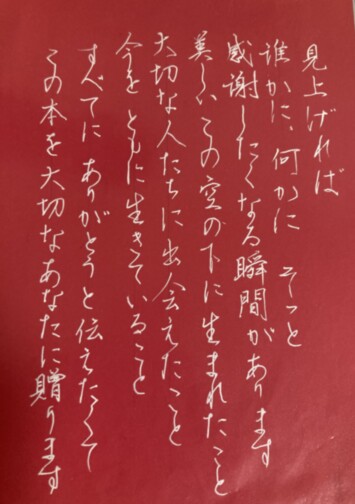 見上げれば
誰かに、何かに　そっと
感謝したくなる瞬間があります
美しいこの空の下に生まれたこと
大切な人たちに出会えたこと
今を ともに生きていること
すべてに ありがとうと伝えたくて
この本を大切なあなたに贈ります